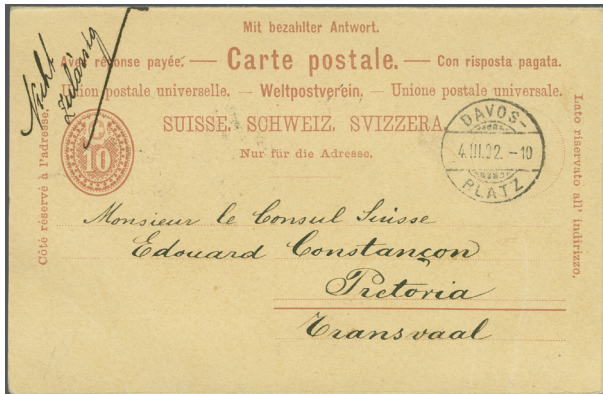 Nicht
zulässig
Mit bezahlter Antwort.
Avec réponse payée. — Carte postale. — Con risposta pagata.
Union postale universelle. — Weltpostverein. — Unione postale universale.
SUISSE. SCHWEIZ. SVIZZERA.
Nur für die Adresse.
Côté réservé à l'adresse.
10
DAVOS-
4.III.92.-10
PLATZ
Lato riservato all' indirizzo.
Monsieur le Consul Suisse
Edouard Constançon
Pretoria
Transvaal